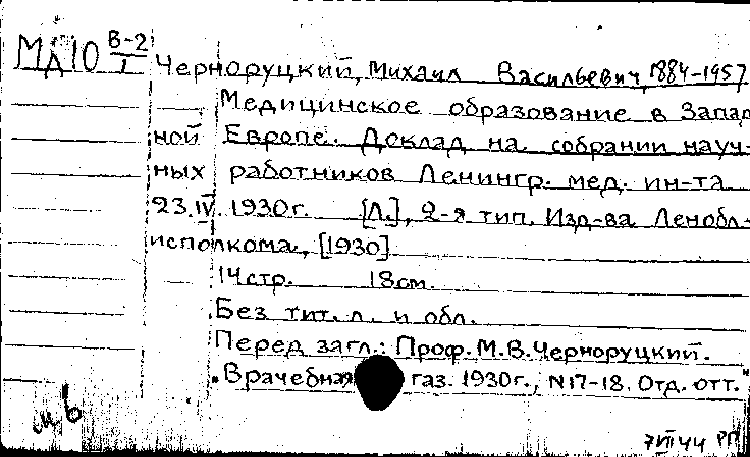 МД10 В-2/1
Черноруцкий, Михаил Васильевич, 1884-1957
Медицинское образование в Запад
ной Европе. Доклад на собрании науч-
ных работников Ленингр. мед. ин-та
23.IV 1930г. [Л.], 2-я тип. Изд-ва Леноблисполкома, [1930]
14 стр. 18 см.
Без тит. л. и обл.
Перед загл.: Проф. М.В. Черноруцкий.
"Врачебная газ. 1930г., №17-18. Отд. отт."
7VII44 РП